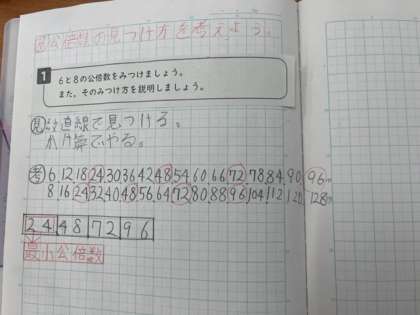 公倍数の見つけ方を考えよう。
1 6と8の公倍数をみつけましょう。
また、そのみつけ方を説明しましょう。
見 数直線で見つける。
かけ算でやる。
考 6,12,18,24,30,36,42,48,54,60,66,72,78,84,90,96
8,16,24,32,40,48,56,64,72,80,88,96,104,112,120,128
24 48 72 96
最小公倍数